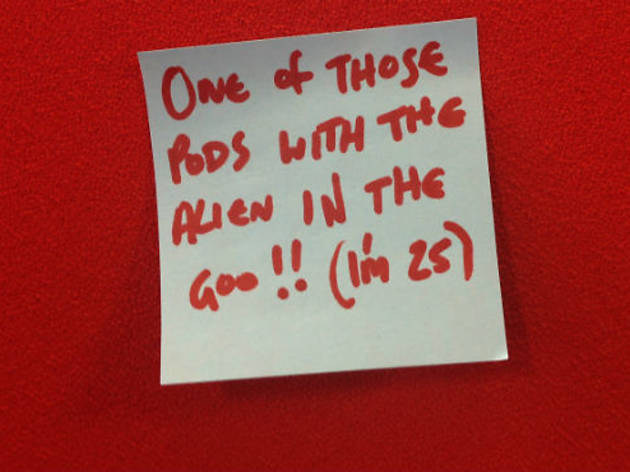 ONE of THOSE
PODS WITH THE
ALIEN IN THE
GOO!! (I'm 25)